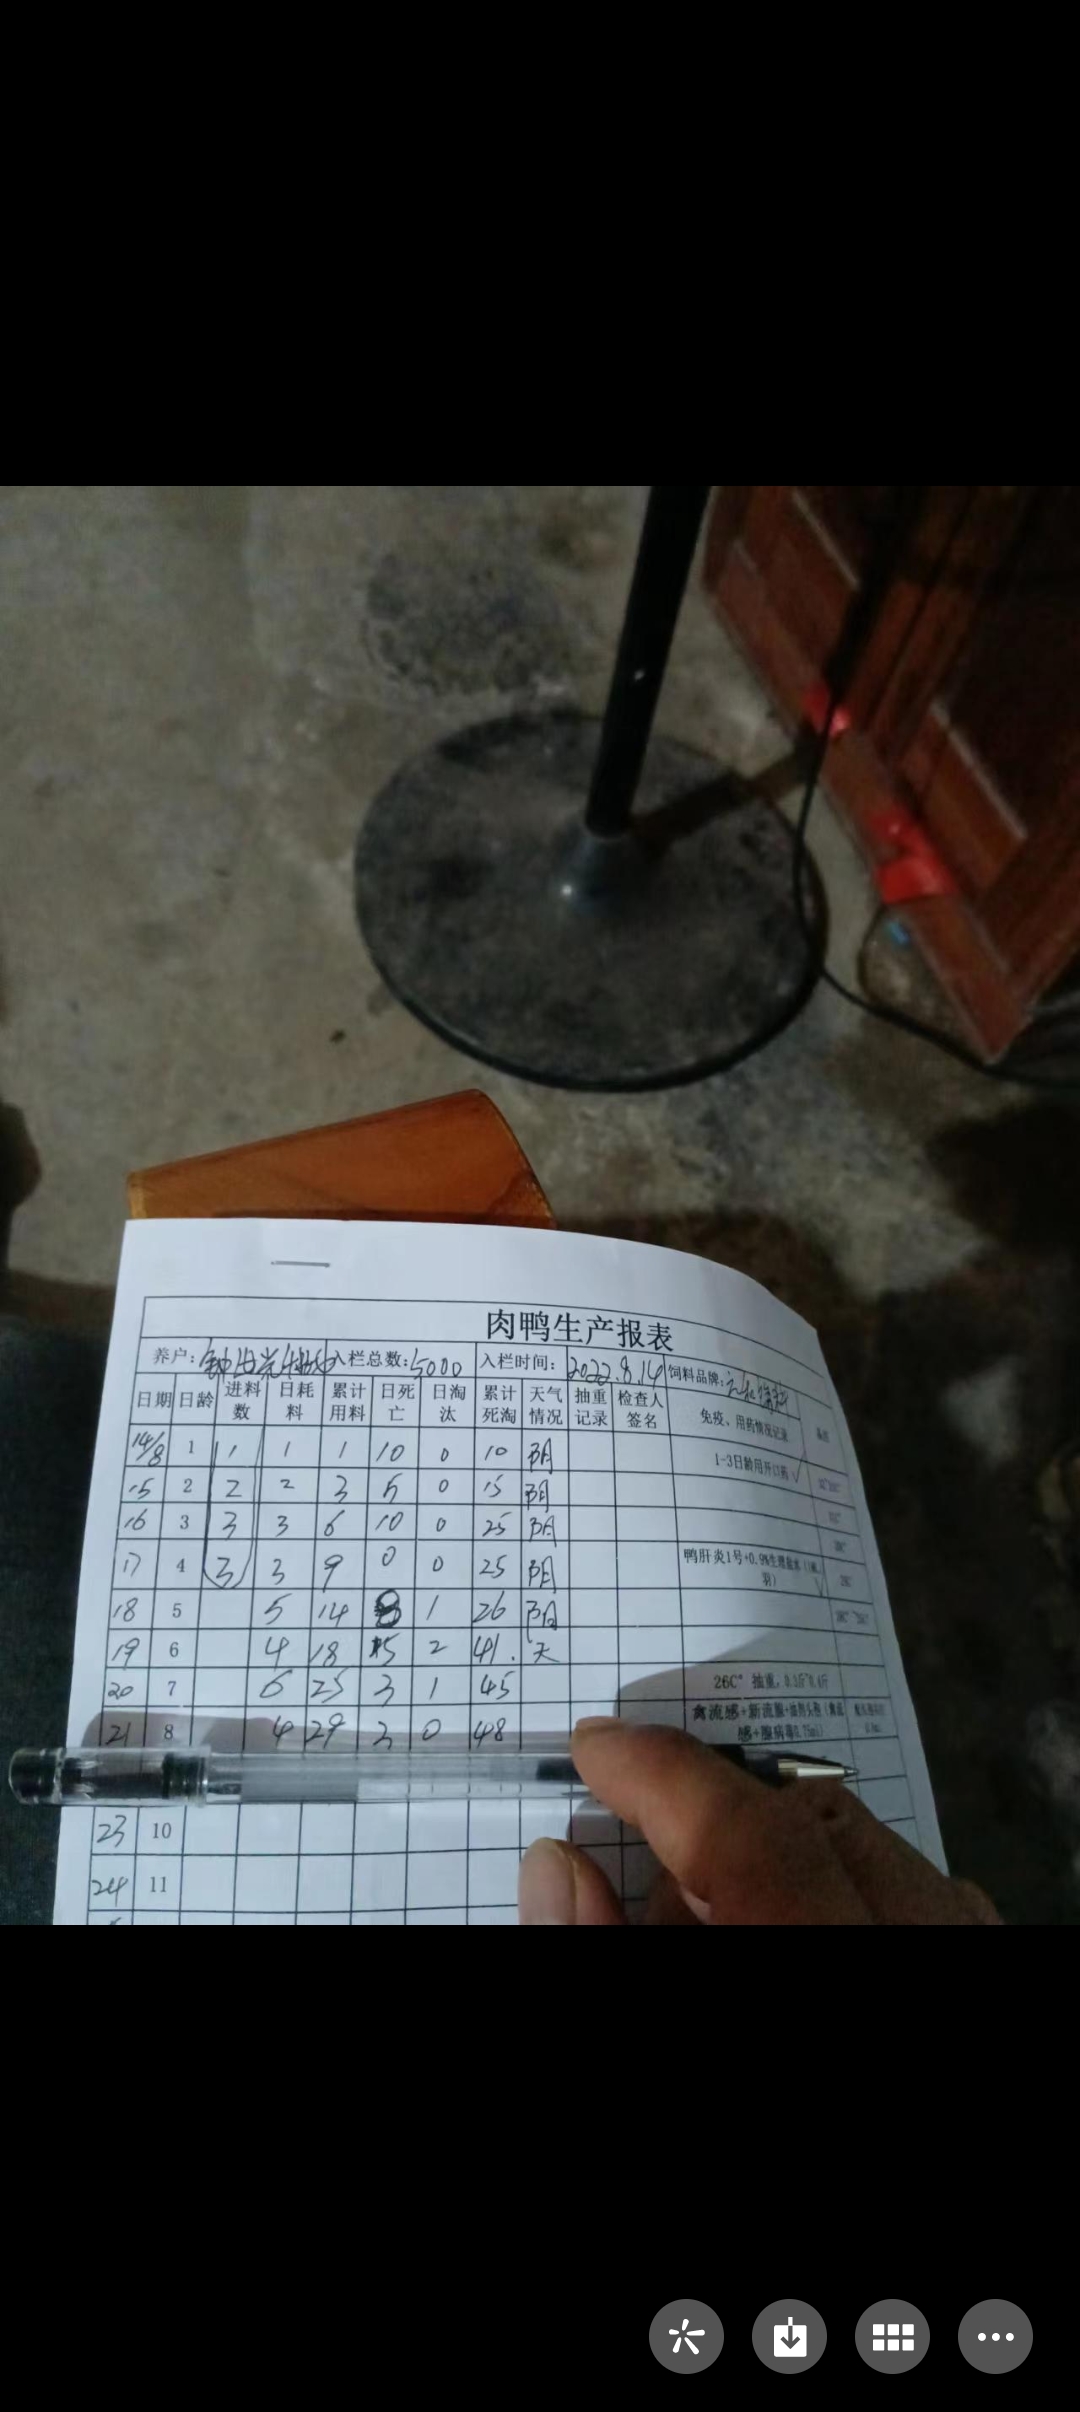 肉鸭生产报表
养户: 入栏总数:5000 入栏时间: 2022.8.14 饲料品牌:
日期 日龄 进料数 日耗料 累计用料 日死亡 日淘汰 累计死淘 天气情况 抽重记录 检查人签名 免疫、用药情况记录
14/8 1 1 1 1 10 0 10 阴 1-3日龄用开口药 ✓
15 2 2 2 3 5 0 15 阴
16 3 3 3 6 10 0 25 阴
17 4 3 3 9 0 0 25 阴 鸭肝炎1号+0.9%生理盐水
18 5 5 14 1 26 阴
19 6 4 18 15 2 41. 天
20 7 6 25 3 1 45 26C° 抽重,
21 8 4 29 3 0 48 禽流感+新流腺+
23 10
24 11